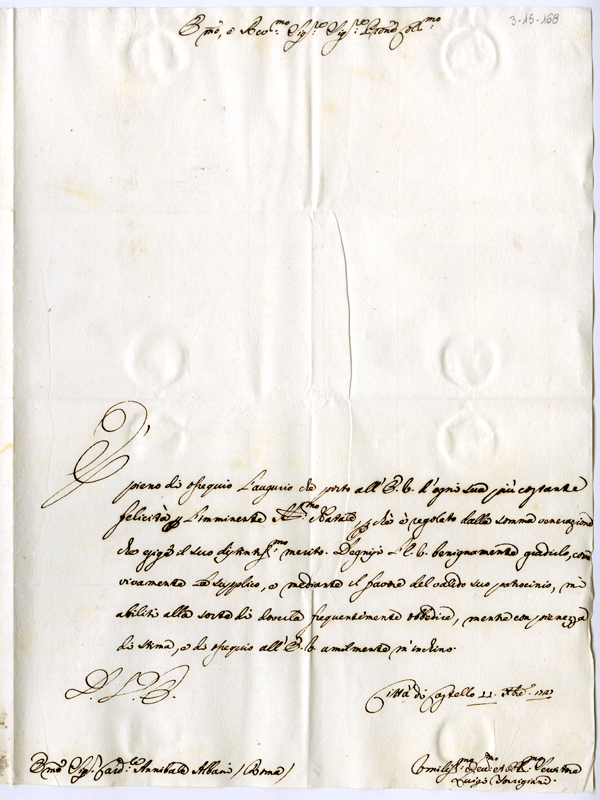 3-15-168
Emo, e Revmo Sigre Sigre Prone Colmo
È
pieno di ossequio l'augurio che porto all'E. V. d'ogni sua più costante
felicità p l'imminente SSmo Natale, p chè è regolato dalla somma venerazione
che esige il suo distintissmo merito. Degnisi l'E. V. benignamente gradirlo, come
vivamente la supplico, e mediante il favore del valido suo patrocinio, mi
abiliti alla sorte di doverla frequentemente obbedire, mentre con pienezza
di stima, e di ossequio all'E. V. umilmente m'inchino.
D. V. E.
Città di Castello 11. Xbre
Emo Sigr Card.le Annibale Albani / Roma /
Umilissmo Devmo et Obbmo Servitore
Luigi